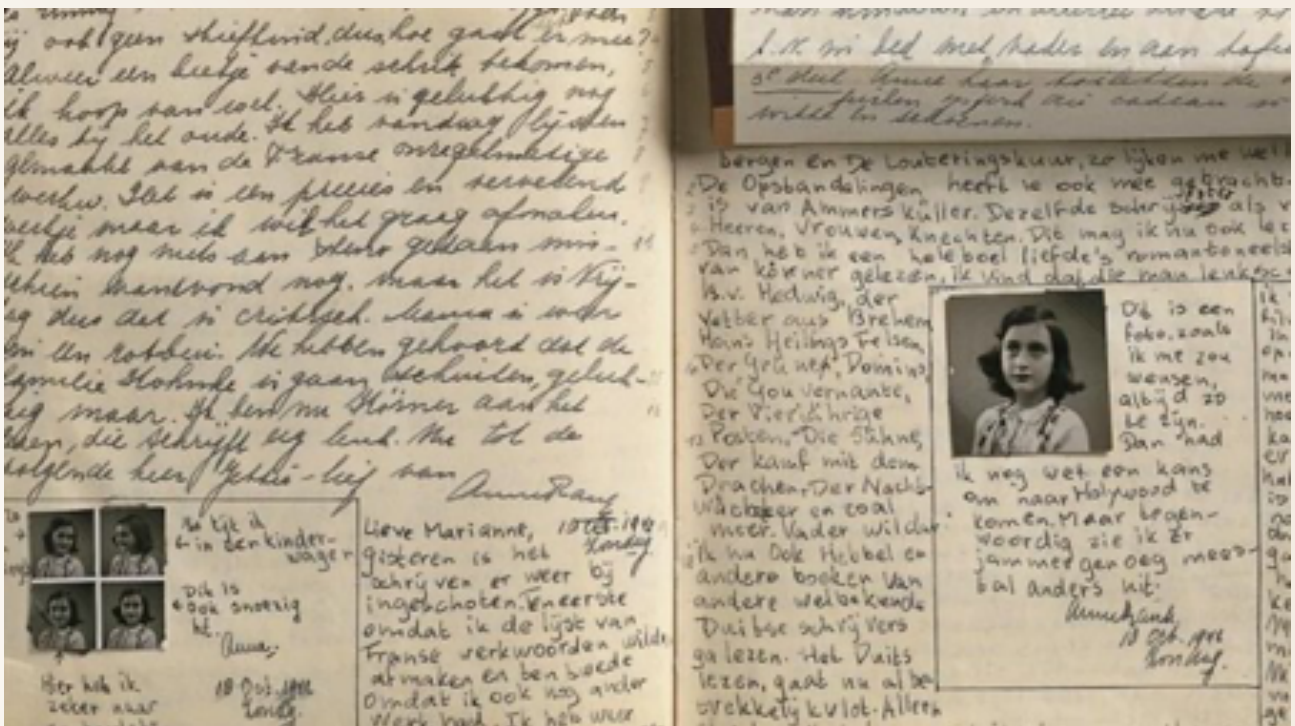 ook geen stiefkind, dus hoe gaat er mee?
alweer een beetje van de schrik bekomen,
ik hoop van wel. Hier is gelukkig nog
alles bij het oude. Ik heb vandaag lijsten
gemaakt van de Franse onregelmatige
werkw. Dat is een precies en vervelend
werkje maar ik wil het graag afmaken.
Ik heb nog niets aan steno gedaan mis-
schien vanavond nog, maar het is Vrij-
dag dus dat is critisch. Mama is weer
We hebben gehoord dat de
familie gaan geluk-
kig maar. Ik ben nu Körner aan het
lezen, die schrijft erg leuk. Nu tot de
volgende keer van
Anne Frank
Zo lijk ik
in een kinder-
wager
Dit is
ook snoezig
hé.
Anne.
Hier heb ik
zeker naar
18 Oct. 1942
Zondag.
Lieve Marianne,
Zondag
gisteren is het
schrijven er weer bij
ingeschoten. Teneerste
omdat ik de lijst van
Franse werkwoorden wilde
afmaken en ten tweede
omdat ik ook nog ander
werk had. Ik heb weer
in bed met vader en aan tafel
3e deel Anne haar
cadeau
bergen en De Louteringskuur, zo lijken me wel
De Opstandelingen heeft ie ook mee gebracht.
is van Ammers Küller. Dezelfde schrijfster als v
Heeren, Vrouwen, Knechten. Dit mag ik nu ook lez
Dan heb ik een heleboel liefde's romantoneels
van körner gelezen, ik vind dat die man leuk sc
B.v. Hedwig, der
Vetter aus Bremen
Hans Heilings Felsen,
Der Grüne, Domino,
Die Gouvernante,
Der Vierjährige
Posten, Die Sühne,
Der Kampf mit dem
Drachen, Der Nacht-
wächter en zoal
meer. Vader wil dat
ik nu ook Hebbel en
andere boeken van
andere welbekende
Duitse schrijvers
ga lezen. Het Duits
lezen, gaat nu al be
trekkelijk vlot. Alleen
Dit is een
foto, zoals
ik me zou
wensen,
altijd zo
te zijn.
Dan had
ik nog wel een kans
om naar Holywood te
komen. Maar tegen-
woordig zie ik er
jammer genoeg mees-
tal anders uit.
Annefrank.
18 Oct. 1942
Zondag.